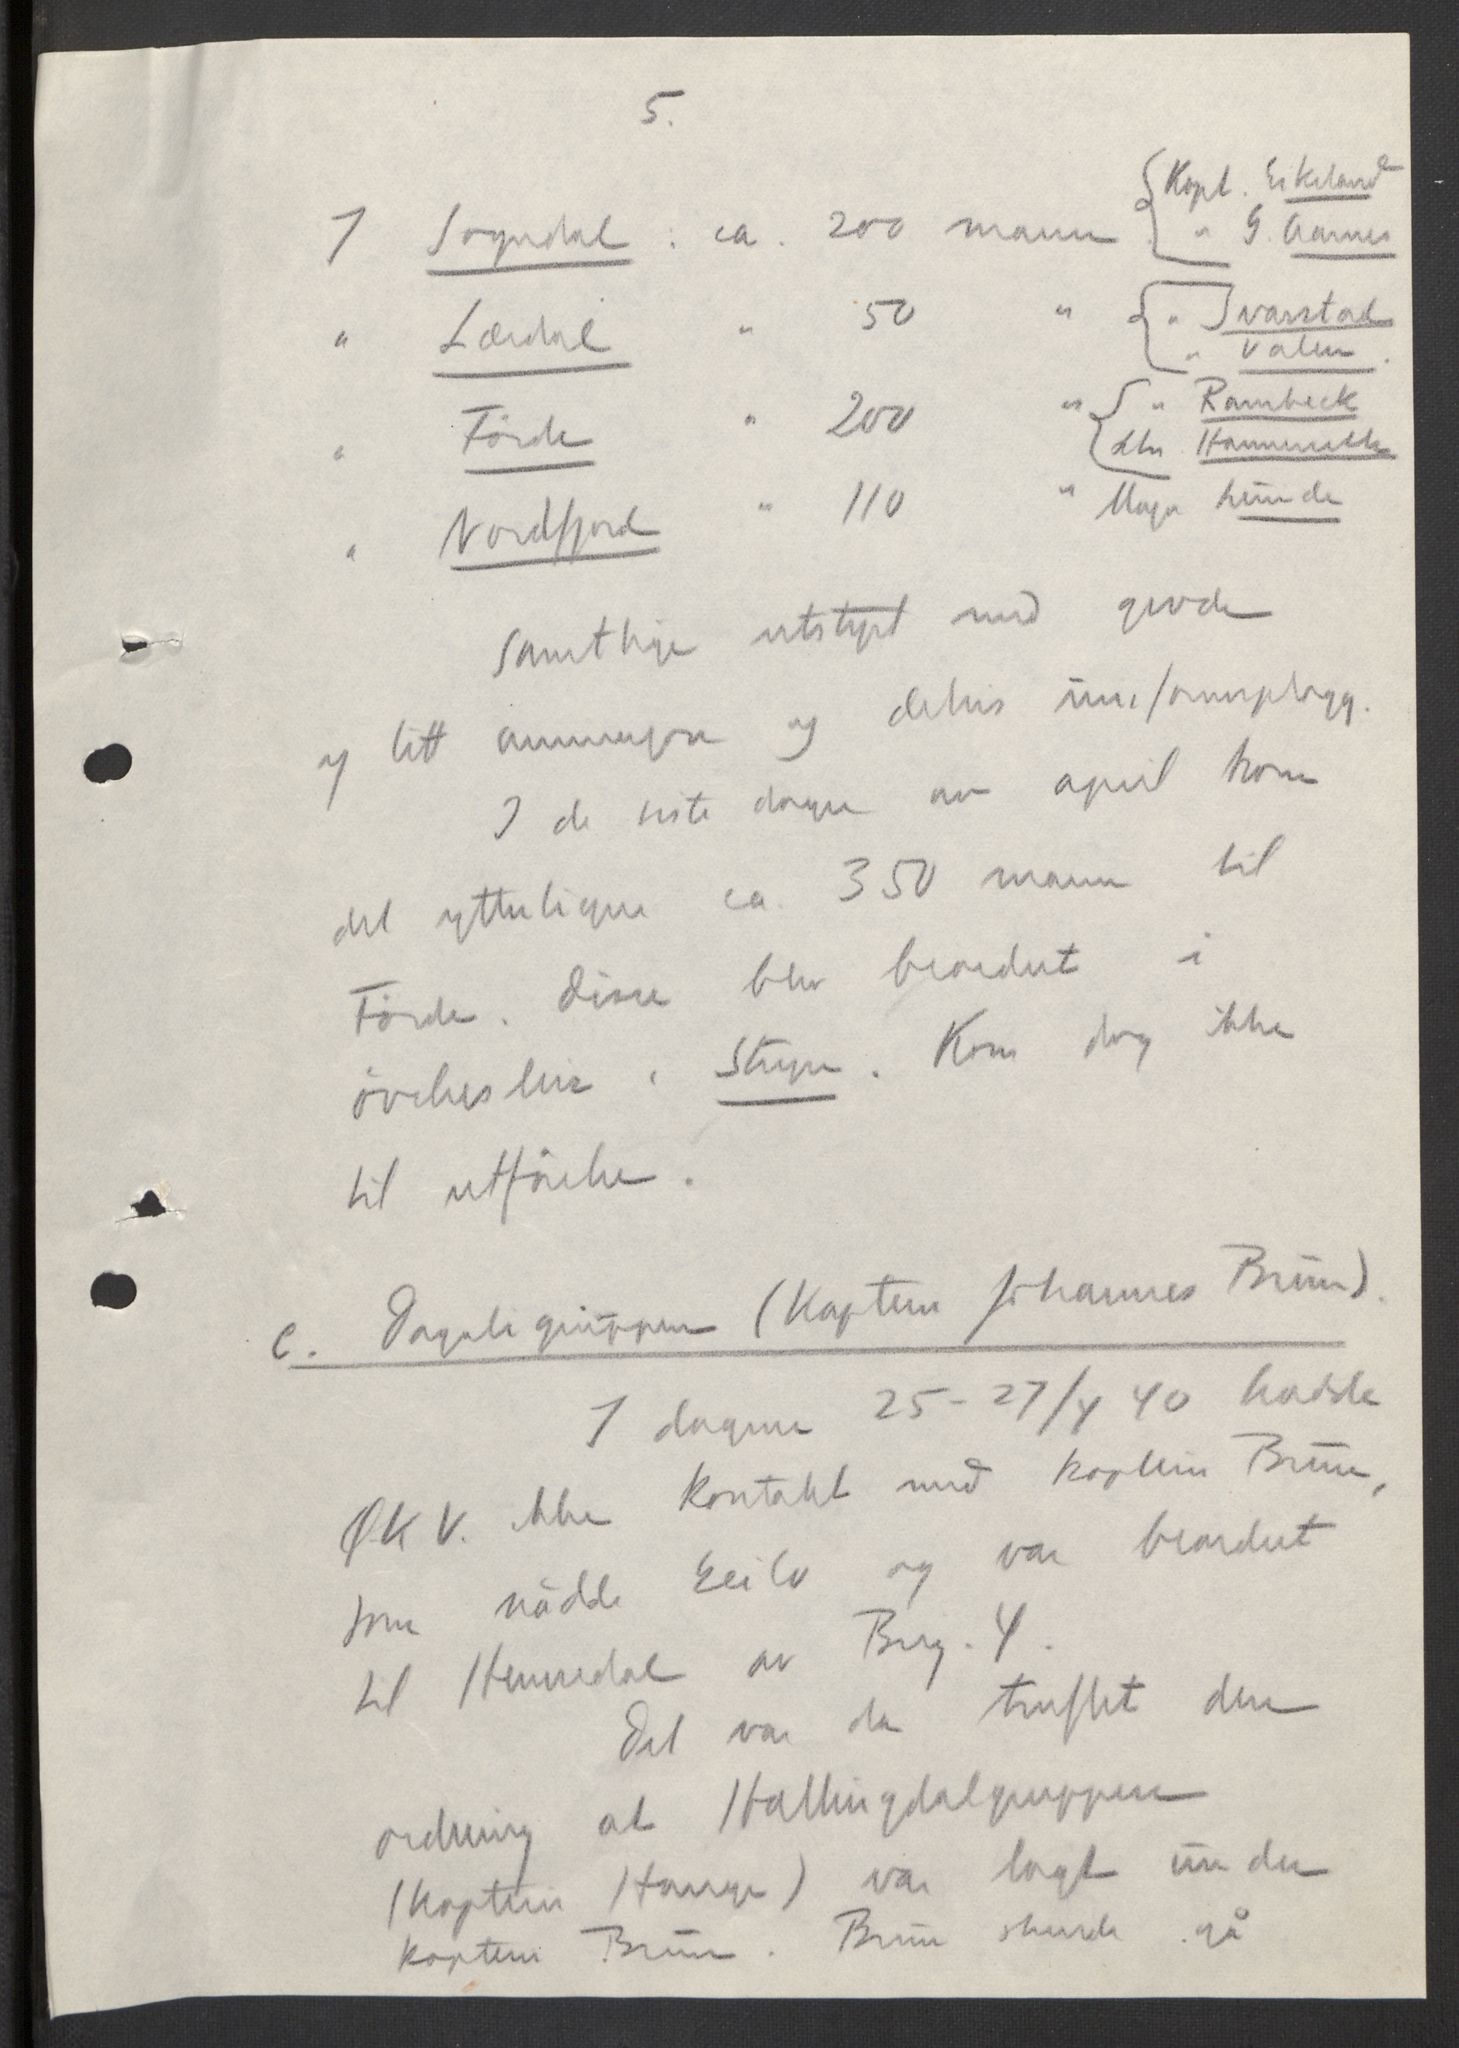 5.
I Sogndal : ca. 200 mann { Kapt. Eikeland
" G. Aarnes
" Lærdal " 50 " { " Ivarstad
" Valen.
" Förde " 200 " { " Rambeck
Ltn.
" Nordfjord " 110 "
Samtlige utstyrt med
og litt ammusjon og delvis uniformsplagg.
I de siste dager av april kom
det ytterligere ca. 350 mann til
Förde. Disse blev beordret i
övelsesleir i Stryn. Kom dog ikke
til utförelse.
c. Dagaligruppen (Kaptein Johannes Brun).
I dagene 25-27/4 40 hadde
ØKV. ikke kontakt med kaptein Brun,
som nådde Geilo og var beordret
til Hemsedal av Brig. 4.
Det var da truffet den
ordning at Hallingdalgruppen
(Kaptein Hauge) var lagt under
kaptein Brun. Brun skulde gå